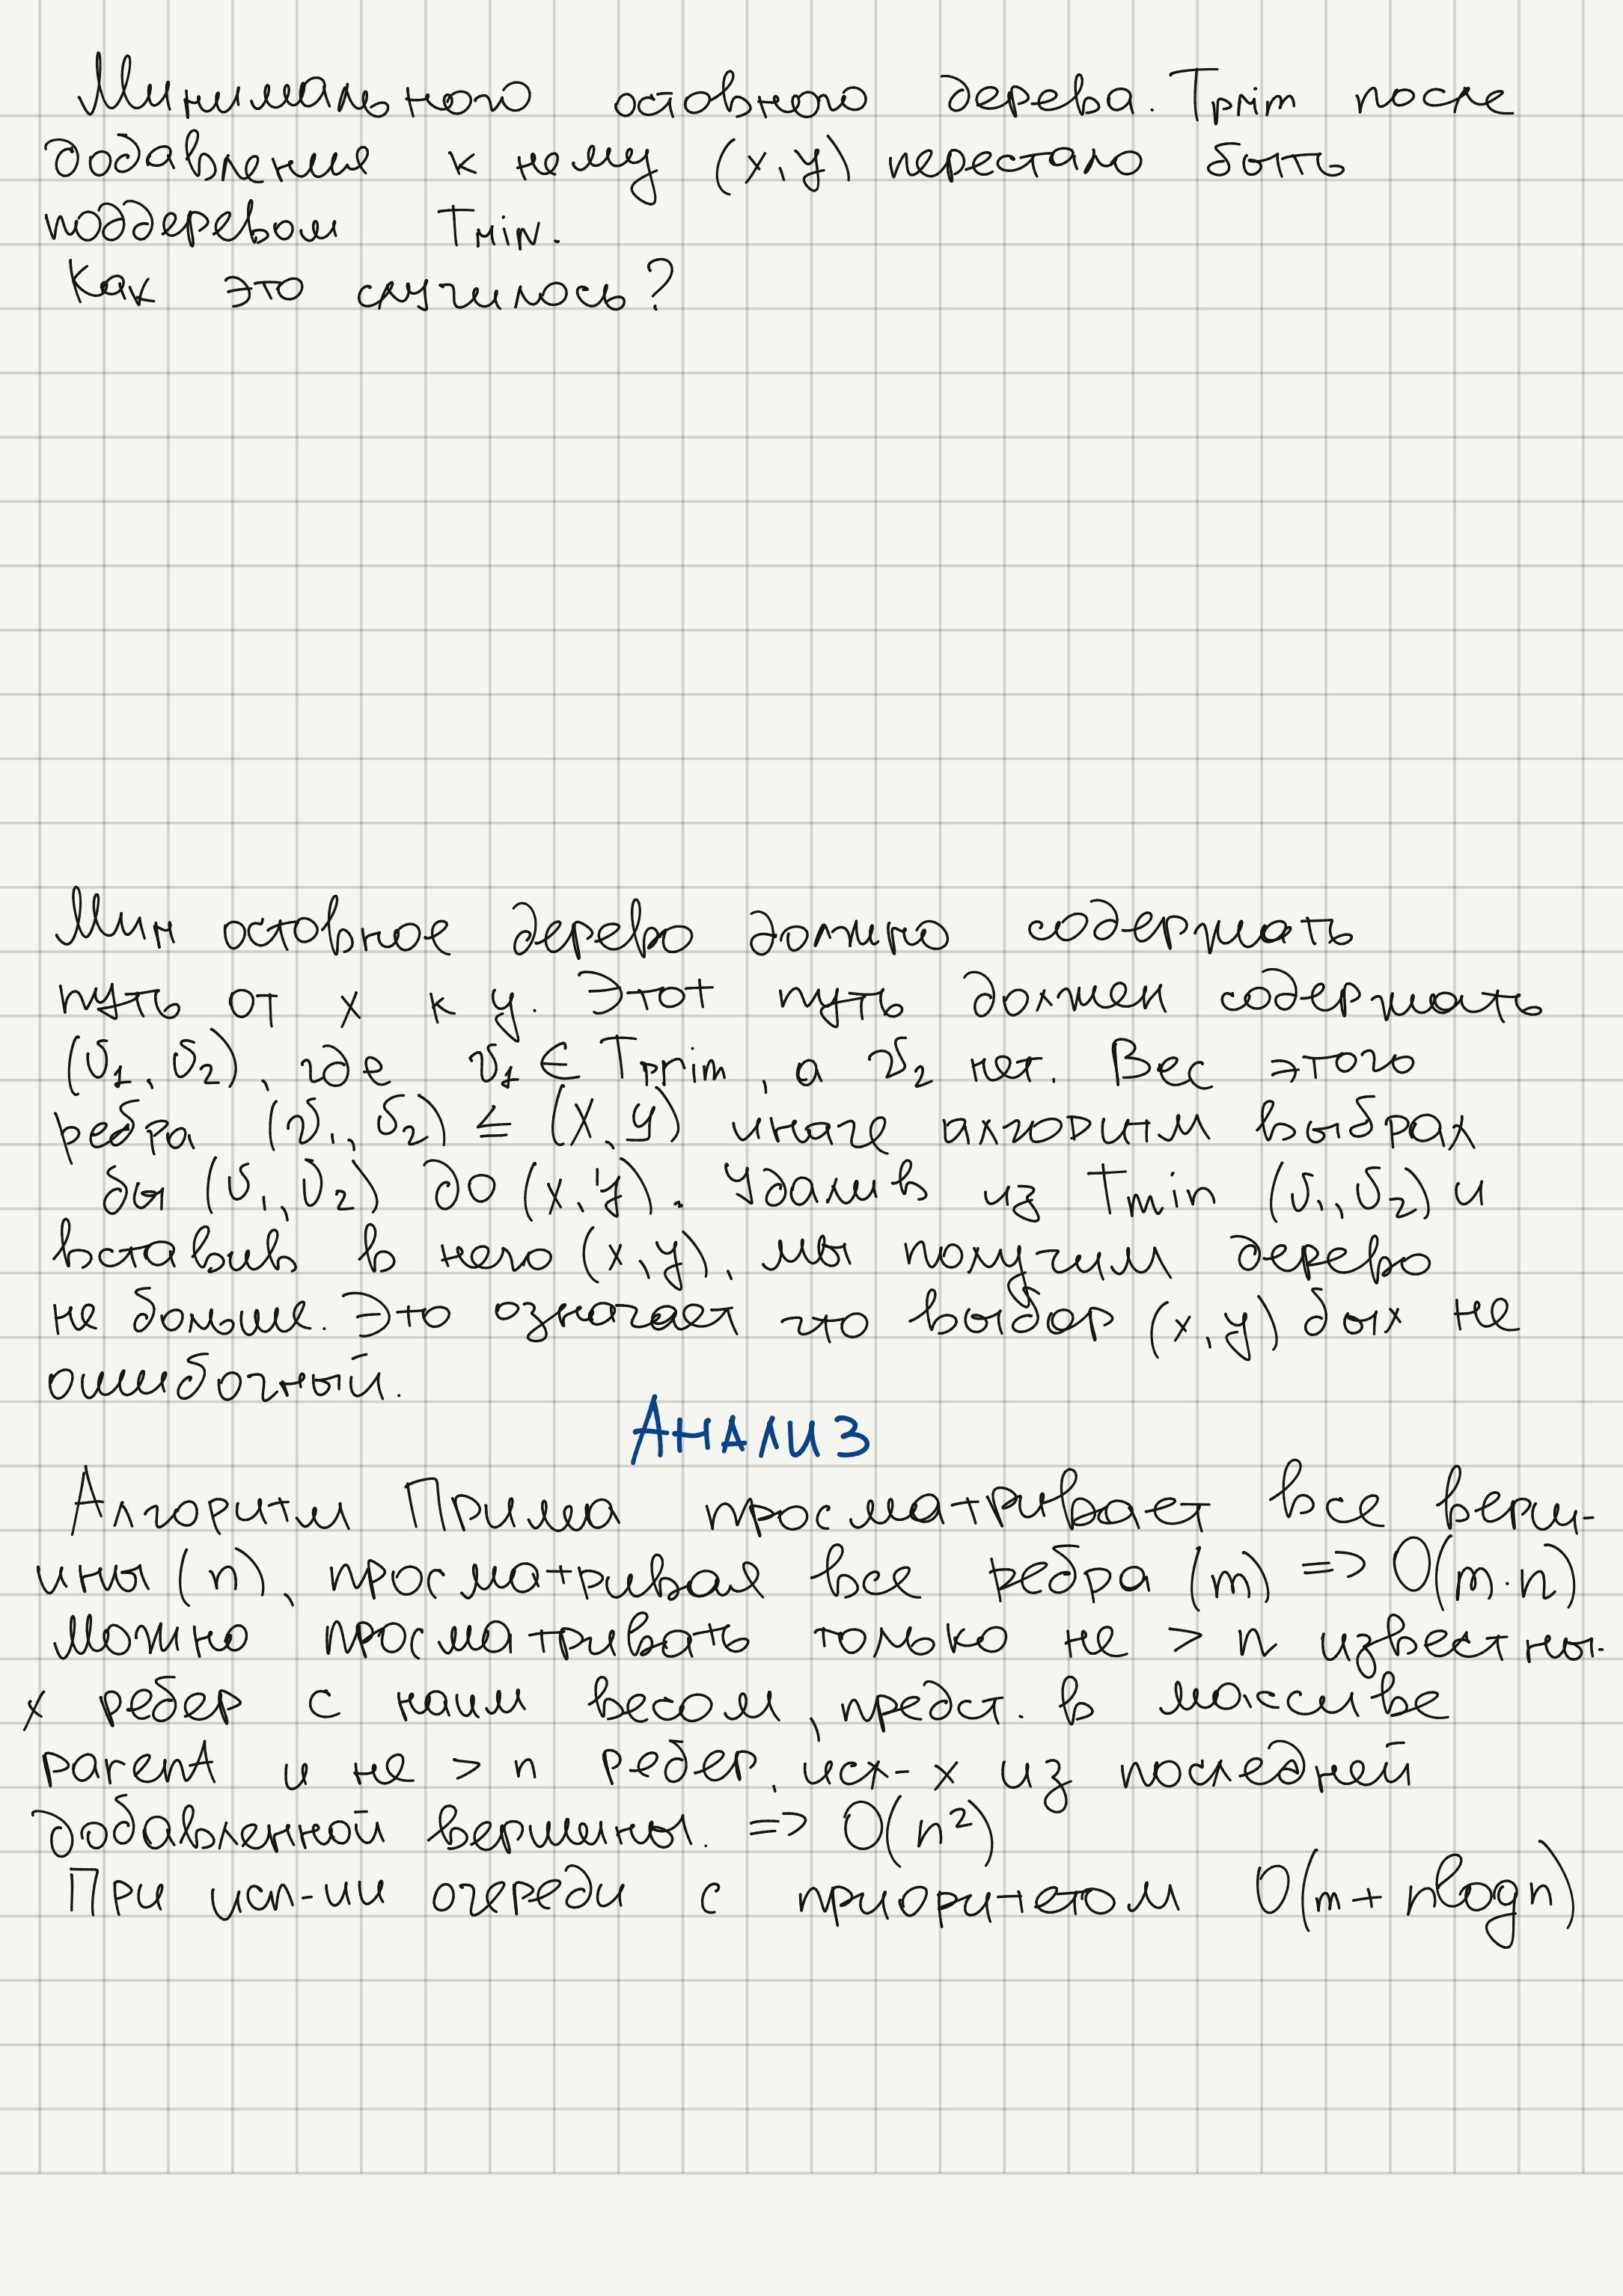 Минимального остовного дерева. Tprim после
додавления к нему (x,y) перестало быть
поддеревом Tmin.
Как это случилось?
Мин остовное дерево должно содержать
путь от x к y. Этот путь должен содержать
(v₁, v₂), где v₁ ∈ Tprim, а v₂ нет. Вес этого
ребра (v₁, v₂) ≤ (x, y) иначе алгоритм выбрал
бы (v₁, v₂) до (x,y). Удалив из Tmin (v₁, v₂) и
вставив в него (x,y), мы получим дерево
не больше. Это означает что выбор (x,y) был не
ошибочный.
Анализ
Алгоритм Прима просматривает все верш-
ины (n), просматривая все ребра (m) => O(m·n)
можно просматривать только не > n известны-
х ребер с наим весом, предст. в массиве
parent и не > n ребер, исх-х из последней
добавленной вершины. => O(n²)
При исп-ии очереди с приоритетом O(m + nlogn)